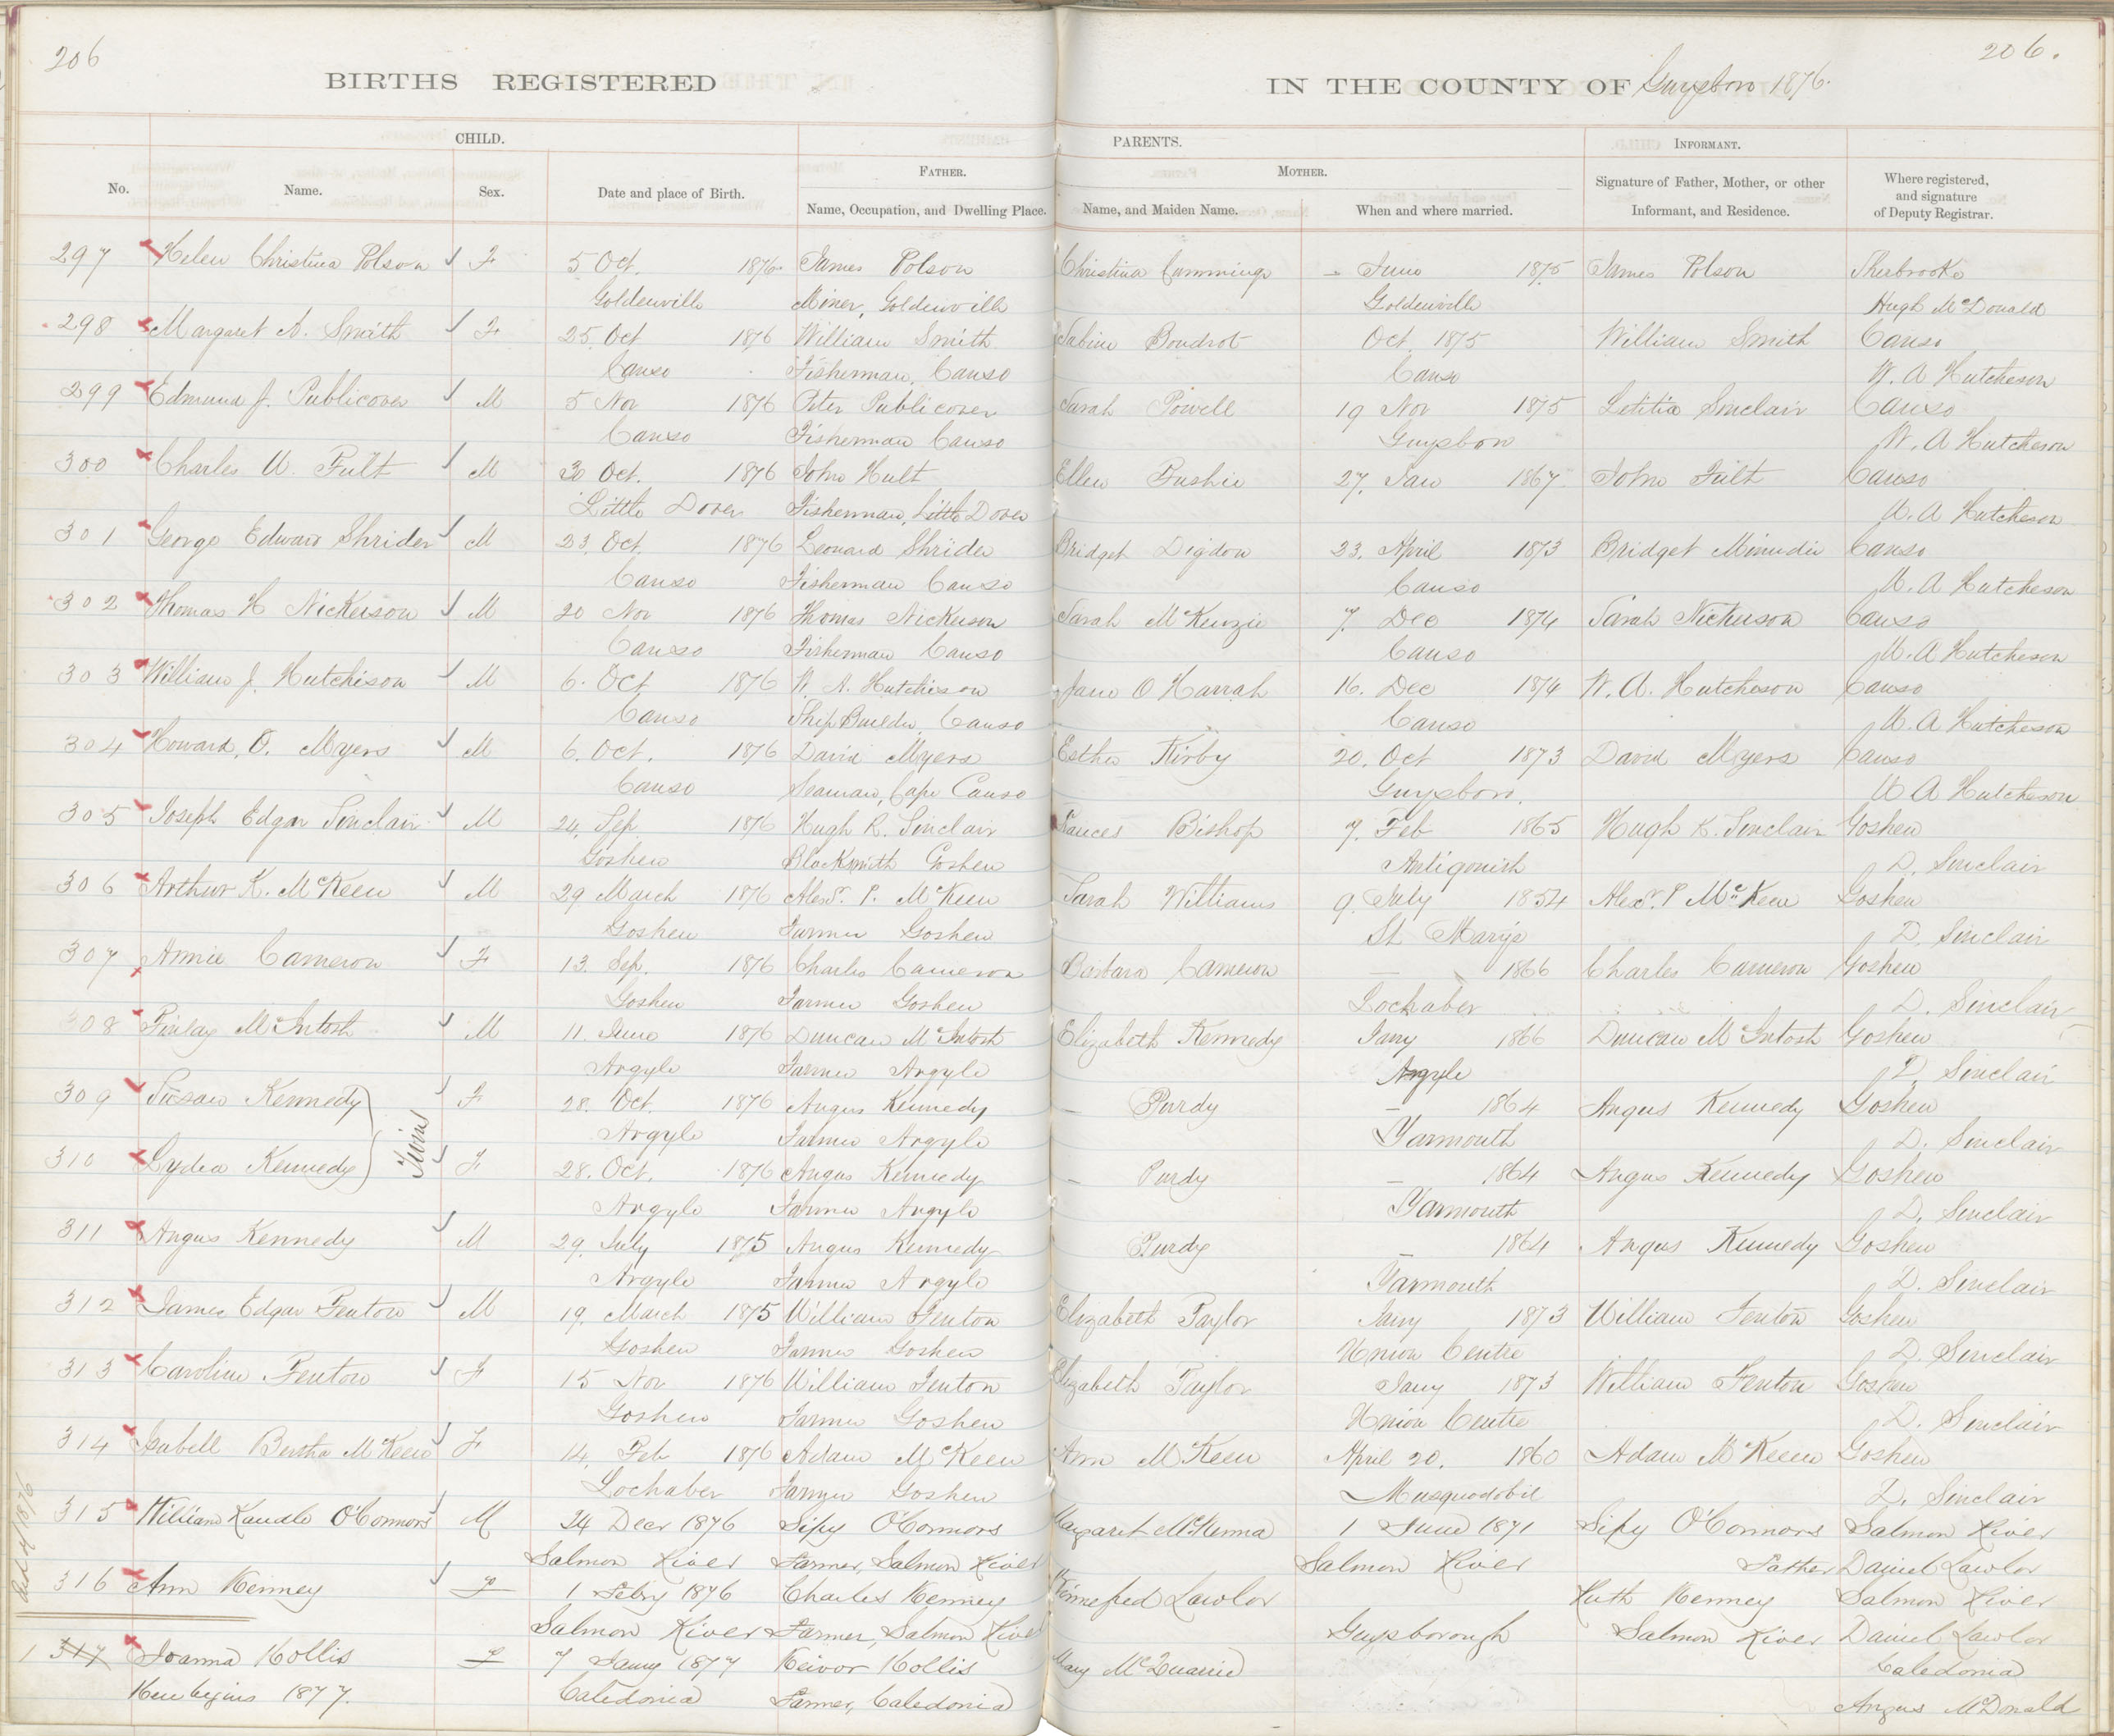 206
206.
BIRTHS REGISTERED IN THE COUNTY OF Guysboro 1876.
CHILD. PARENTS. INFORMANT.
FATHER. MOTHER.
No. Name. Sex. Date and place of Birth. Name, Occupation, and Dwelling Place. Name, and Maiden Name. When and where married. Signature of Father, Mother, or other Informant, and Residence. Where registered, and signature of Deputy Registrar.
297 Helen Christina Polson F 5 Oct. 1876. James Polson Christina Cummings - June 1875 James Polson Sherbrooke
Goldenville Miner, Goldenville Goldenville Hugh McDonald
298 Margaret A. Smith F 25. Oct 1876 William Smith Sabine Boudrot Oct. 1875 William Smith Canso
Canso Fisherman, Canso Canso W. A Hutcheson
299 Edmund J. Publicover M 5 Nov 1876 Peter Publicover Sarah Powell 19 Nov 1875 Letitia Sinclair Canso
Canso Fisherman Canso Guysboro W. A Hutcheson
300 Charles W. Fult M 30 Oct. 1876 John Hult Ellen Fushie 27. Jan 1867 John Fult Canso
Little Dover Fisherman, Little Dover W. A Hutcheson
301 George Edward Shrider M 23, Oct. 1876 Leonard Shrider Bridget Digdon 23. April 1873 Bridget Canso
Canso Fisherman Canso Canso W. A Hutcheson
302 Thomas H Nickerson M 20 Nov 1876 Thomas Nickerson Sarah McKenzie 7. Dec 1874 Sarah Nickerson Canso
Canso Fisherman Canso Canso W. A Hutcheson
303 William J. Hutchison M 6. Oct 1876 W. A. Hutcheson Jane O Harrah 16. Dec 1874 W. A. Hutcheson Canso
Canso Ship Builder, Canso Canso W. A Hutcheson
304 Howard, O. Myers M 6. Oct. 1876 David Myers Esther Kirby 20. Oct 1873 David Myers Canso
Canso Seaman, Cape Canso Guysboro. W A Hutcheson
305 Joseph Edgar Sinclair M 24. Sep. 1876 Hugh R. Sinclair Frances Bishop 7. Feb 1865 Hugh R. Sinclair Goshen
Goshen Blacksmith Goshen Antigonish D. Sinclair
306 Arthur K. McKeen M 29 March 1876 Alexr. P. McKeen Sarah Williams 9. July 1854 Alexr. P McKeen Goshen
Goshen Farmer Goshen St Mary's D. Sinclair
307 Annie Cameron F 13. Sep. 1876 Charles Cameron Barbara Cameron - 1866 Charles Cameron Goshen
Goshen Farmer Goshen Lochaber D. Sinclair
308 Finlay McIntosh M 11. June 1876 Duncan McIntosh Elizabeth Kennedy Jany 1866 Duncan McIntosh Goshen
Argyle Farmer Argyle Argyle D. Sinclair
309 Susan Kennedy F 28. Oct. 1876 Angus Kennedy - Purdy - 1864 Angus Kennedy Goshen
Twins
Argyle Farmer Argyle Yarmouth D. Sinclair
310 Lydia Kennedy F 28. Oct. 1876 Angus Kennedy - Purdy - 1864 Angus Kennedy Goshen
Argyle Farmer Argyle Yarmouth D. Sinclair
311 Angus Kennedy M 29. July 1875 Angus Kennedy Purdy - 1864 Angus Kennedy Goshen
Argyle Farmer Argyle Yarmouth D. Sinclair
312 James Edgar Fenton M 19. March 1875 William Fenton Elizabeth Taylor Jany 1873 William Fenton Goshen
Goshen Farmer Goshen Union Centre D. Sinclair
313 Caroline Fenton F 15 Nov 1876 William Fenton Elizabeth Taylor Jany 1873 William Fenton Goshen
Goshen Farmer Goshen Union Centre D. Sinclair
314 Isabell Bertha McKeen F 14. Feb 1876 Adam McKeen Ann McKeen April 20. 1860 Adam McKeen Goshen
Lochaber Farmer Goshen Musquodobit D. Sinclair
315 William Kaudlo O'Connors M 24 Decr 1876 Sify O'Connors Margaret McKenna 1 June 1871 Sify O'Connors Salmon River
Salmon River Farmer, Salmon River Salmon River Father Daniel Lawlor
end of 1876
316 Ann Kenney F 1 Febry 1876 Charles Kenney Winnefred Lawlor Ruth Kenney Salmon River
Salmon River Farmer, Salmon River Guysborough Salmon River Daniel Lawlor
1 317 Joanna Hollis F 7 Jany 1877 Hollis Mary McQuarrie Caledonia
Here begins 1877. Caledonia Farmer, Caledonia Angus McDonald